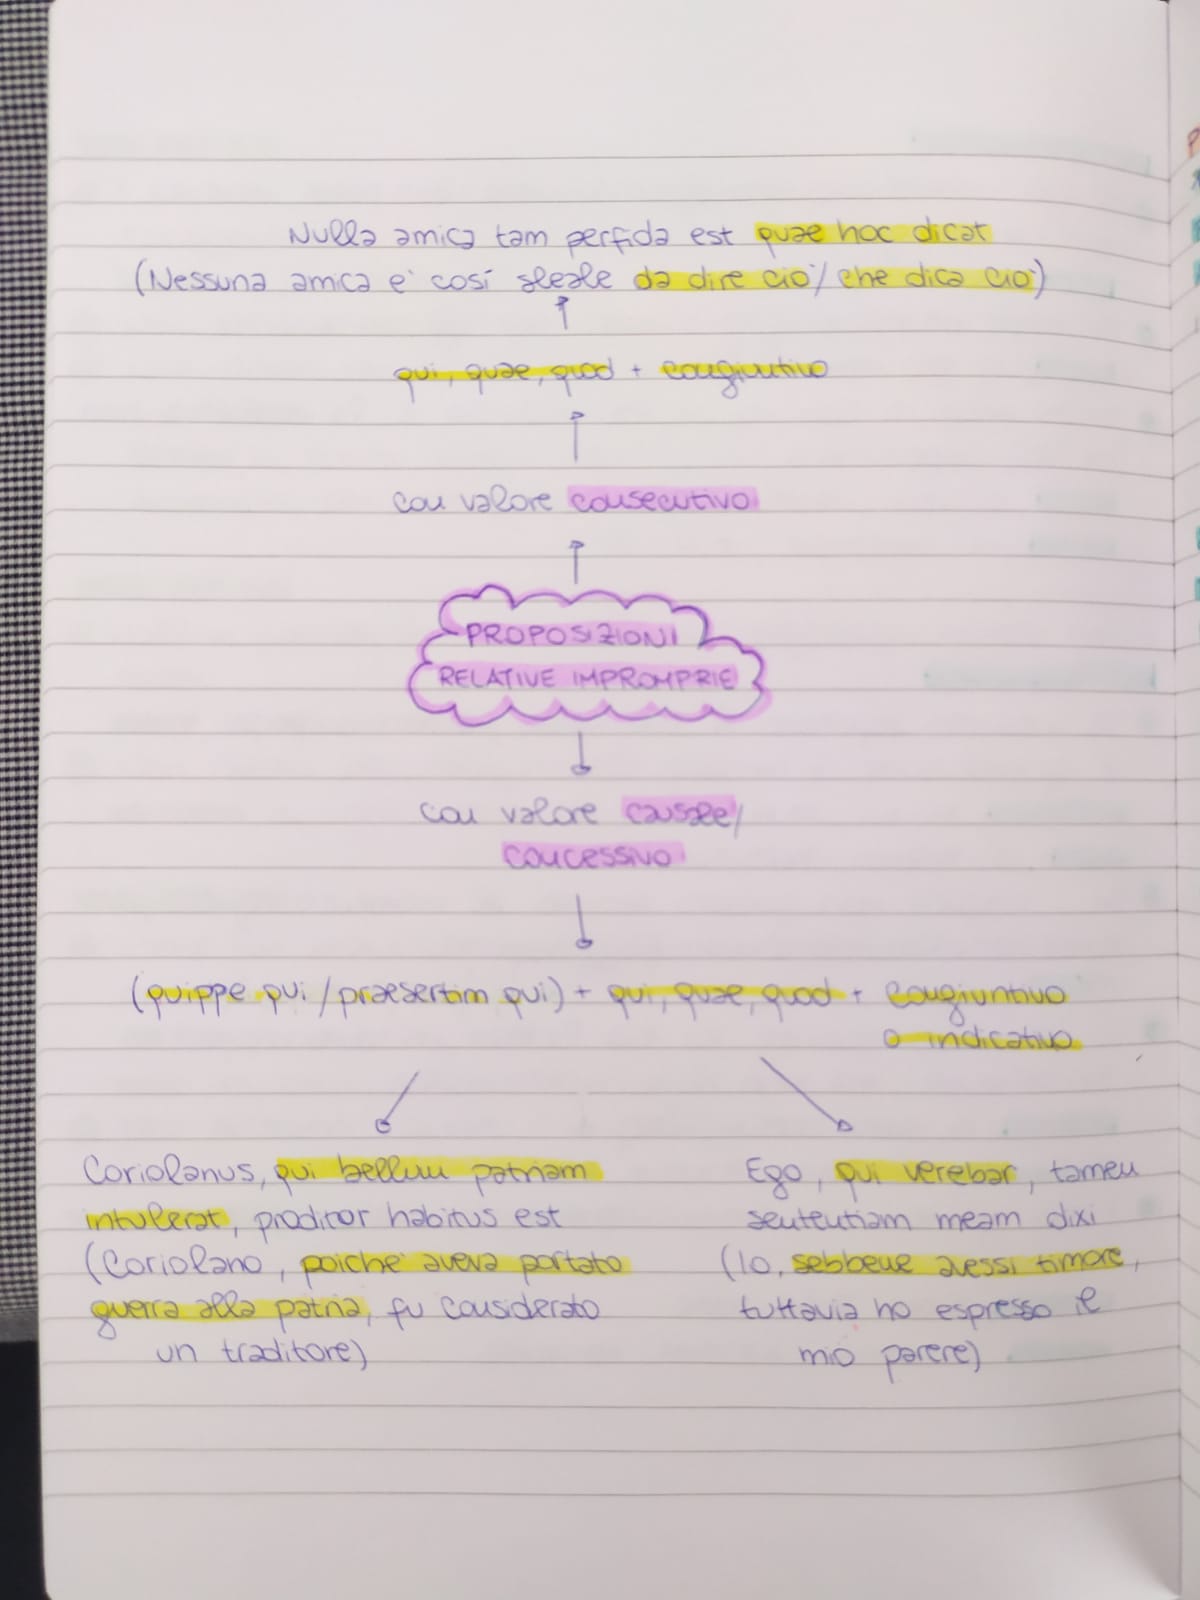 Nulla amica tam perfida est quae hoc dicat
(Nessuna amica e' così sleale da dire ciò / che dica ciò)
qui, quae, quod + congiuntivo
con valore consecutivo
PROPOSIZIONI
RELATIVE IMPROMPRIE
con valore causale/
concessivo
(quippe qui / praesertim qui) + qui, quae, quod + congiuntivo
o indicativo
Coriolanus, qui bellum patriam
intulerat, proditor habitus est
(Coriolano, poiché aveva portato
guerra alla patria, fu considerato
un traditore)
Ego, qui verebar, tamen
sententiam meam dixi
(Io, sebbene avessi timore,
tuttavia ho espresso il
mio parere)